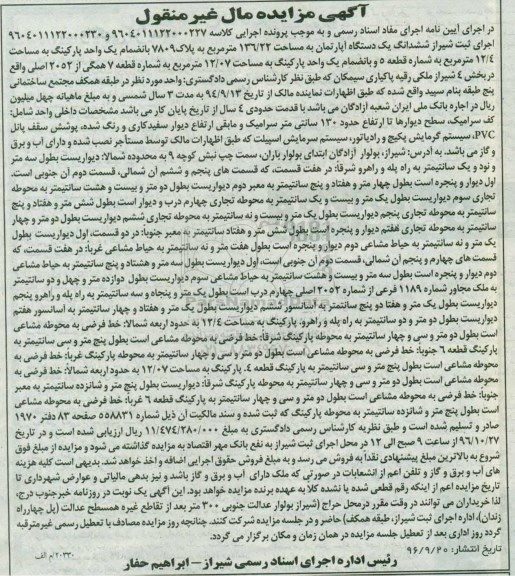 آگهی مزایده مال غیر منقول
در اجرای آیین نامه اجرای مفاد اسناد رسمی و به موجب پرونده اجرایی کلاسه ۹۶۰۴۰۱۱۱۲۲۰۰۰۲۲۷ و ۹۶۰۴۰۱۱۱۲۲۰۰۰۲۳۰
اجرای ثبت شیراز ششدانگ یک دستگاه آپارتمان به مساحت ۱۳۶/۲۲ مترمربع به پلاک ۷۸۰۹ بانضمام یک واحد پارکینگ به مساحت
۱۲/۴ مترمربع به شماره قطعه ۵ و بانضمام یک واحد پارکینگ به مساحت ۱۲/۰۷ مترمربع به شماره قطعه ۷ همگی از ۲۰۵۳ اصلی واقع
در بخش ۴ شیراز ملکی رقیه پاکیاری سیمکان که طبق نظر کارشناس رسمی دادگستری: واحد مورد نظر در طبقه همکف مجتمع ساختمانی
پنج طبقه بنام سپید واقع شده که طبق اظهارات نماینده مالک از تاریخ ۹۴/۹/۱۳ به مدت ۳ سال شمسی و به مبلغ ماهیانه چهل میلیون
ریال در اجاره بانک ملی ایران شعبه آزادگان می باشد با قدمت حدودی ۴ سال از تاریخ پایان کار می باشد مشخصات داخلی واحد شامل:
کف سرامیک، سطح دیوارها تا ارتفاع حدود ۱۳۰ سانتی متر سرامیک و مابقی ارتفاع دیوار سفیدکاری و رنگ شده، پوشش سقف پانل
PVC، سیستم گرمایش پکیج و رادیاتور، سیستم سرمایش اسپیلت که طبق اظهارات مالک توسط مستأجر نصب شده و دارای آب و برق
و گاز می باشد. به آدرس: شیراز، بولوار آزادگان ابتدای بولوار باران، سمت چپ نبش کوچه ۹ به محدوده شمالا: دیواریست بطول سه متر
و نود و یک سانتیمتر به راه پله و راهرو شرقاً: در هفت قسمت، که قسمت های پنجم و ششم آن شمالی، قسمت دوم آن جنوبی است.
اول دیوار و پنجره است بطول چهار متر و هفتاد و پنج سانتیمتر به معبر دوم دیواریست بطول دو متر و بیست و هشت سانتیمتر به محوطه
تجاری سوم دیواریست بطول یک متر و بیست و یک سانتیمتر به محوطه تجاری چهارم درب و دیوار است بطول شش متر و هفتاد و پنج
سانتیمتر به محوطه تجاری پنجم دیواریست بطول یک متر و بیست و نه سانتیمتر به محوطه تجاری ششم دیواریست بطول دو متر و چهار
سانتیمتر به محوطه تجاری هفتم دیوار و پنجره است بطول شش متر و هفتاد سانتیمتر به معبر جنوبا: در دو قسمت، اول دیواریست بطول
یک متر و نه سانتیمتر به حیاط مشاعی دوم دیوار و پنجره است بطول هفت متر و نه سانتیمتر به حیاط مشاعی غرباً: در هفت قسمت، که
قسمت های چهارم و پنجم آن شمالی، قسمت دوم آن جنوبی است، اول دیواریست بطول سه متر و هشتاد و پنج سانتیمتر به حیاط مشاعی
دوم دیوار و پنجره است بطول سه متر و بیست و هشت سانتیمتر به حیاط مشاعی سوم دیواریست بطول دوازده متر و چهل و دو سانتیمتر
به ملک مجاور شماره ۱۱۸۹ فرعی از شماره ۲۰۵۳ اصلی چهارم درب است بطول یک متر و پنجاه و سه سانتیمتر به راه پله و راهرو پنجم
دیواریست بطول یک متر و هفتاد دو پنج سانتمتر به آسانسور ششم دیواریست بطول یک متر و هفتاد و چهار سانتیمتر به آسانسور هفتم
دیواریست بطول دو متر و دو سانتیمتر به راه پله و راهرو. پارکینگ به مساحت ۱۲/۴ به حدود اربعه شمالا: خط فرضی به محوطه مشاعی
است بطول دو متر و سی و چهار سانتیمتر به محوطه پارکینگ شرقاً: خط فرضی به محوطه مشاعی است بطول پنج متر و سی سانتیمتر به
پارکینگ قطعه ۶ جنوبا: خط فرضی به محوطه مشاعی است بطول دو متر و سی و چهار سانتیمتر به محوطه پارکینگ غرباً: خط فرضی به
محوطه مشاعی است بطول پنج متر و سی سانتیمتر به پارکینگ قطعه ۴. پارکینگ به مساحت ۱۲/۰۷ به حدود اربعه شمالا: خط فرضی به
محوطه مشاعی است بطول دو متر و سی و چهار سانتیمتر به محوطه پارکینگ شرقاً: دیواریست بطول پنج متر و شانزده سانتیمتر به معبر
جنوبا: خط فرضی به محوطه مشاعی است بطول دو متر و سی و چهار سانتیمتر به محوطه پارکینگ غرباً: خط فرضی به محوطه مشاعی
است بطول پنج متر و شانزده سانتیمتر به محوطه پارکینگ که ثبت شده و سند مالکیت آن ذیل شماره ۵۵۸۸۳۱ صفحه ۸۳ دفتر ۱۹۷۰
صادر و تسلیم شده است و طبق نظریه کارشناس رسمی دادگستری به مبلغ ۱۱/۴۷۴/۲۸۰/۰۰۰ ریال ارزیابی شده است و در تاریخ
۹۶/۱۰/۲۷ از ساعت ۹ صبح الی ۱۲ در محل اجرای ثبت شیراز به نفع بانک مهر اقتصاد به مزایده گذاشته می شود و مزایده از مبلغ فوق
شروع به بالاترین مبلغ پیشنهادی نقداً به فروش می رسد و به مبلغ فروش حقوق اجرایی اضافه و اخذ خواهد شد. بدیهی است کلیه هزینه
های آب و برق و گاز و تلفن اعم از انشعابات در صورتی که ملک دارای آب و برق و گاز باشد و نیز بدهی مالیاتی و عوارض شهرداری تا
تاریخ مزایده اعم از اینکه رقم قطعی شده یا نشده کلاً به عهده برنده مزایده خواهد بود. این آگهی یک نوبت در روزنامه خبرجنوب درج،
لذا خریداران می توانند در وقت مقرر درمحل حراج (شیراز بولوار عدالت جنوبی ۳۰۰ متر بعد از تقاطع غیره همسطح عدالت (پل چهارراه
زندان)، اداره اجرای ثبت شیراز، طبقه همکف) حاضر و در جلسه مزایده شرکت کنند. چنانچه روز مزایده مصادف با تعطیل رسمی غیرمترقبه
گردد روز اداری بعد از تعطیل جلسه مزایده در همان زمان و مکان برگزار می گردد.
تاریخ انتشار: ۹۶/۹/۲۰
۲۰۳۳۰/م الف
رئیس اداره اجرای اسناد رسمی شیراز – ابراهیم حفار